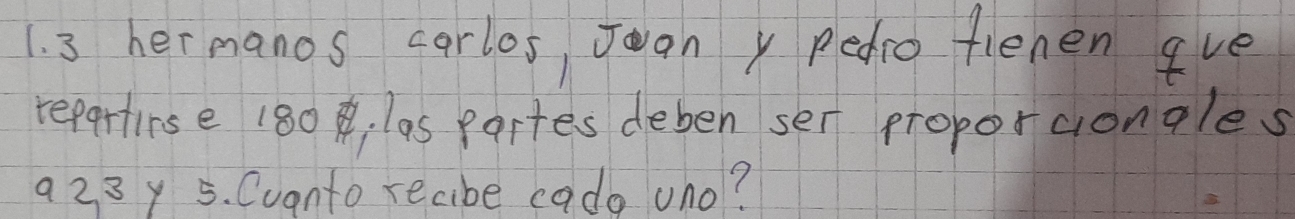 1.3 hermanos carlos, Juan y pedro tienen que
repartirse 180 $, las partes deben ser proporcionales
a 2,3 y 5. Cuanto recibe cada uno?